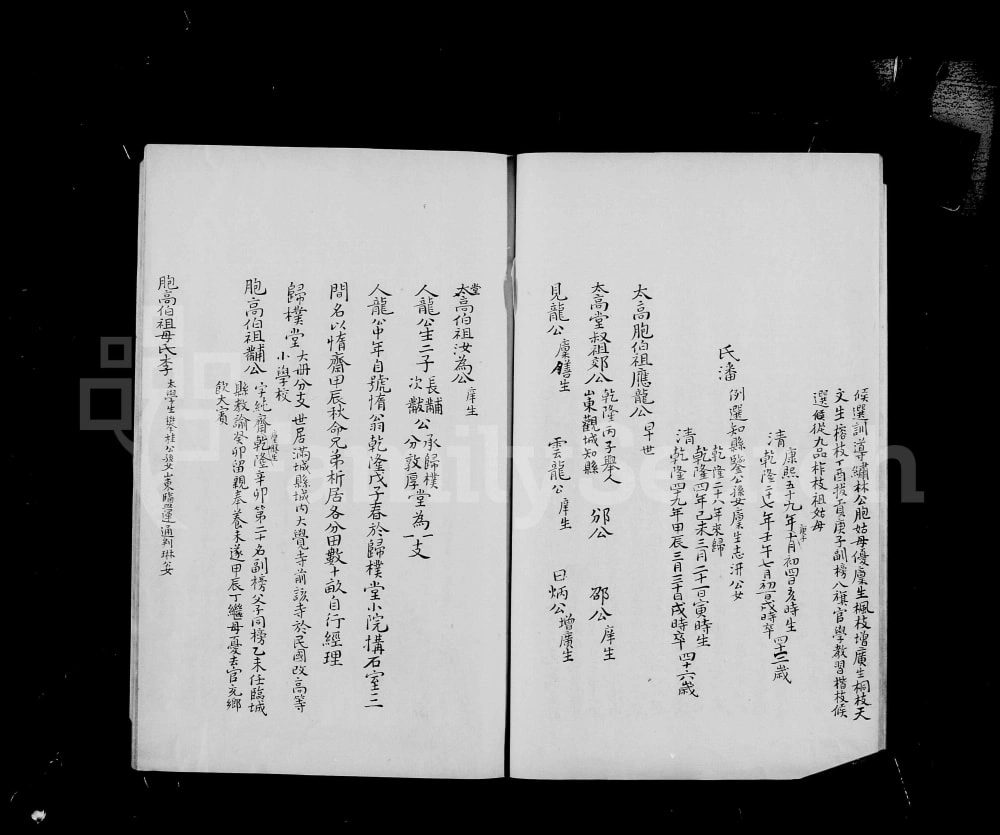 候選訓導繡林公胞姑母優廩生楓枝增廣生桐枝天
文生楷枝丁酉拔貢庚子副榜八旗官學教習楷枝候
選候從九品柞枝祖姑母
清 康熙五十九年庚子十月初四日亥時生
乾隆二十七年壬午七月初一日戌時卒 四十三歲
氏潘 例選知縣鑒公孫女廩生志汧公女
乾隆二十八年來歸
清 乾隆四年己未三月二十一日寅時生
乾隆四十九年甲辰三月三十日戌時卒 四十六歲
太高胞伯祖應龍公 早世
太高堂叔祖郊公 乾隆丙子舉人 山東觀城知縣 邠公 邵公 庠生
見龍公 廩膳生 雲龍公 庠生 曰炳公 增廣生
太高堂伯祖汝為公 庠生
人龍公生二子 長黼公承歸樸 次黻公分敦厚堂為一支
人龍公中年自號惰翁乾隆戊子春於歸樸堂小院搆石室三
間名以惰齋甲辰秋命兄弟析居各分田數十畝自行經理
歸樸堂 大冊分支 世居滿城縣城內大覺寺前該寺於民國改高等
小學校
胞高伯祖黼公 字純齋廩膳生乾隆辛卯第二十名副榜父子同榜乙未任臨城
縣教諭癸卯留親奉養未遂甲辰丁繼母憂去官充鄉
飲大賓
胞高伯祖母氏李 太學生攀桂公孫女山東臨邑運通判琳公女
FamilySearch